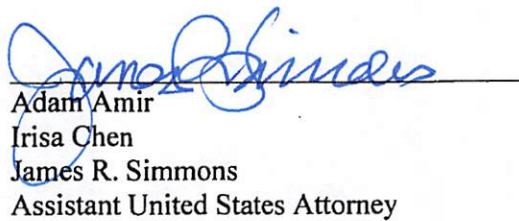 Adam Amir
Irisa Chen
James R. Simmons
Assistant United States Attorney